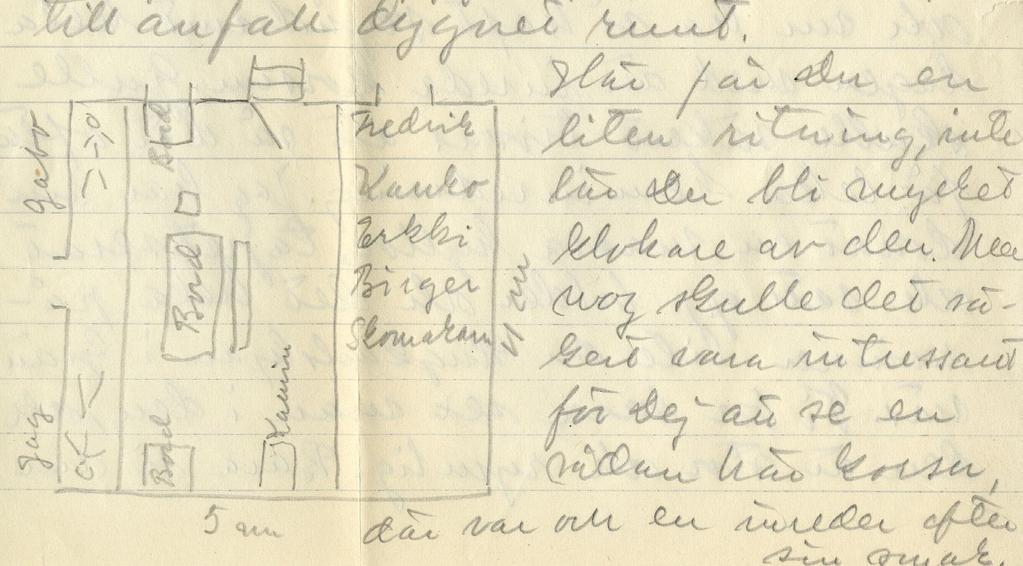 till anfall dygnet runt.
Här får Du en
liten ritning, inte
lär Du bli mycket
klokare av den. Men
nog skulle det sä-
kert vara intressant
för Dej att se en
sådan här korsu,
där var och en inreder efter
sin smak.
Gabor
Jag
Bord
Bord
Bord
Kamin
Fredrik
Kauko
Erkki
Birger
Skomakarn
5 m